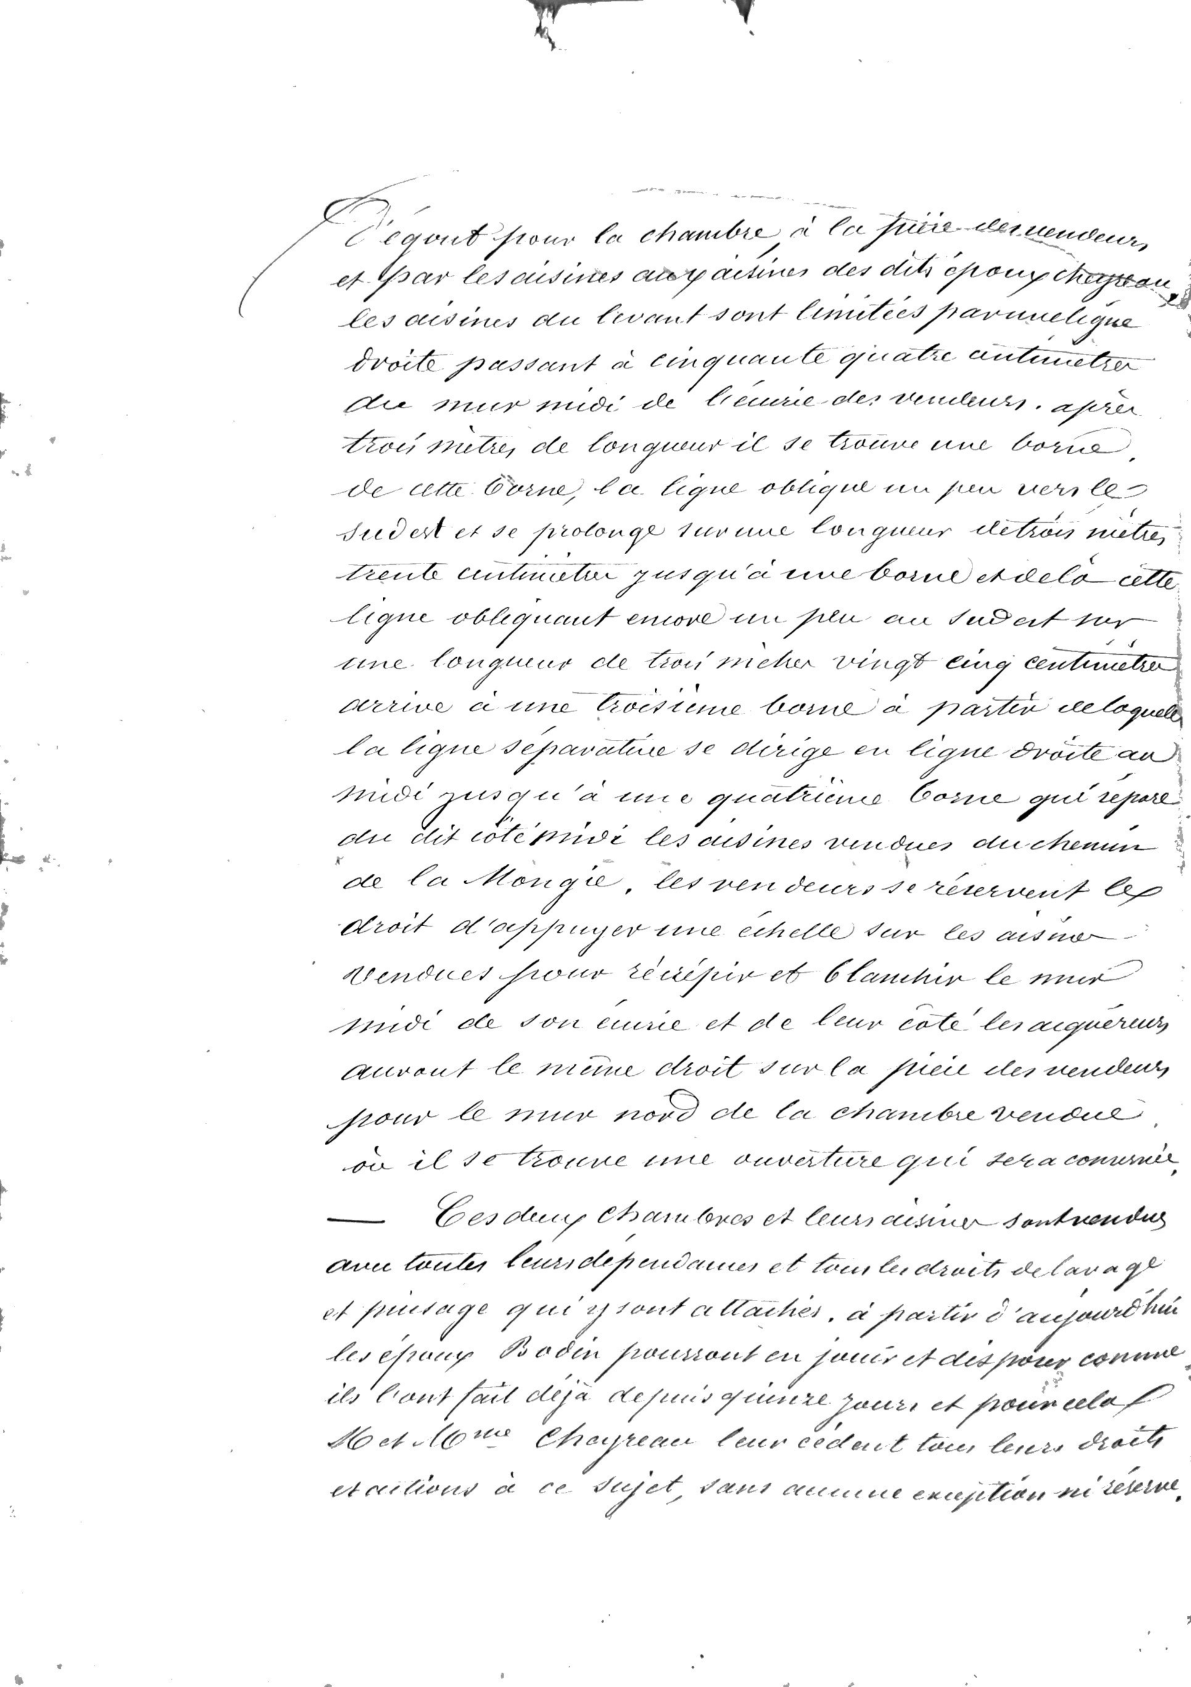 d'égout pour la chambre, à la pièce des vendeurs
et par les aisines aux aisines des dits époux Cheyreau,
les aisines du levant sont limitées par une ligne
droite passant à cinquante quatre centimètres
du mur midi de l'écurie des vendeurs. après
trois mètres de longueur il se trouve une borne.
de cette borne, la ligne oblique un peu vers le
sud est et se prolonge sur une longueur de trois mètres
trente centimètres jusqu'à une borne et de là cette
ligne obliquant encore un peu au sud est sur
une longueur de trois mètres vingt cinq centimètres
arrive à une troisième borne à partir de laquelle
la ligne séparative se dirige en ligne droite au
midi jusqu'à une quatrième borne qui sépare
du dit côté midi les aisines vendues du chemin
de la Mongie. les vendeurs se réservent le
droit d'appuyer une échelle sur les aisines
vendues pour récrépir et blanchir le mur
midi de son écurie et de leur côté les acquéreurs
auront le même droit sur la pièce des vendeurs
pour le mur nord de la chambre vendue
où il se trouve une ouverture qui sera conservée.
— Ces deux chambres et leurs aisines sont vendues
avec toutes leurs dépendances et tous les droits de lavage
et puisage qui y sont attachés. à partir d'aujourd'hui
les époux Bodin pourront en jouir et disposer comme
ils l'ont fait déjà depuis quinze jours et pour cela
M et Mme Cheyreau leur cèdent tous leurs droits
et actions à ce sujet, sans aucune exception ni réserve.